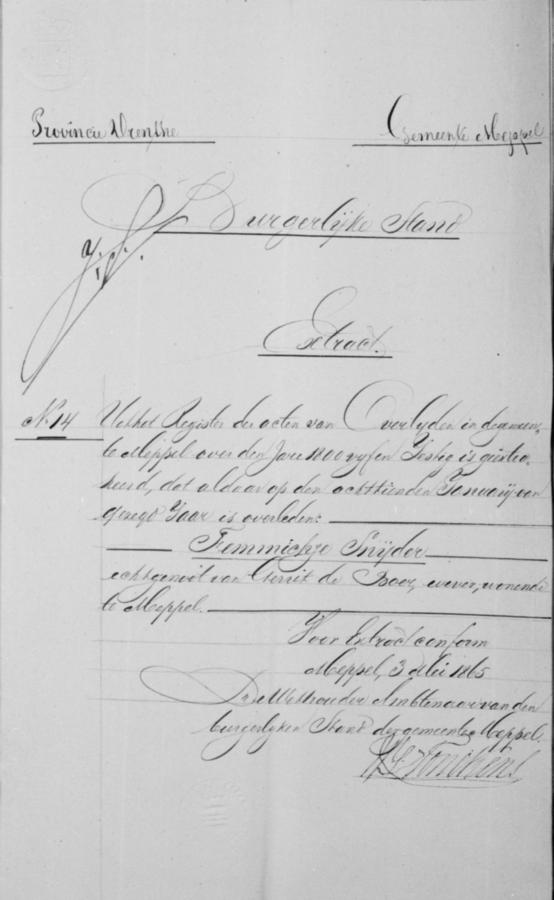 Provincie Drenthe
Gemeente Meppel
Burgerlijke Stand
Extract.
No. 14
Uit het Register der acten van Overlyden in de gemeen,
te Meppel over den Jare 1800 vyf en Zestig is geextra,
heerd, dat aldaar op den achttienden January van
gezegd Jaar is overleden:
Femmichje Snijder
echtgenoot van Gerrit de Boer, wever, wonende
te Meppel.
Voor Extract conform
Meppel, 3 Mei 1865
De Wethouder Ambtenaar van den
burgerlyken Stand der gemeente Meppel